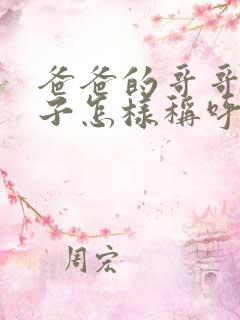 爸爸的哥哥
子怎样称呼
周宏